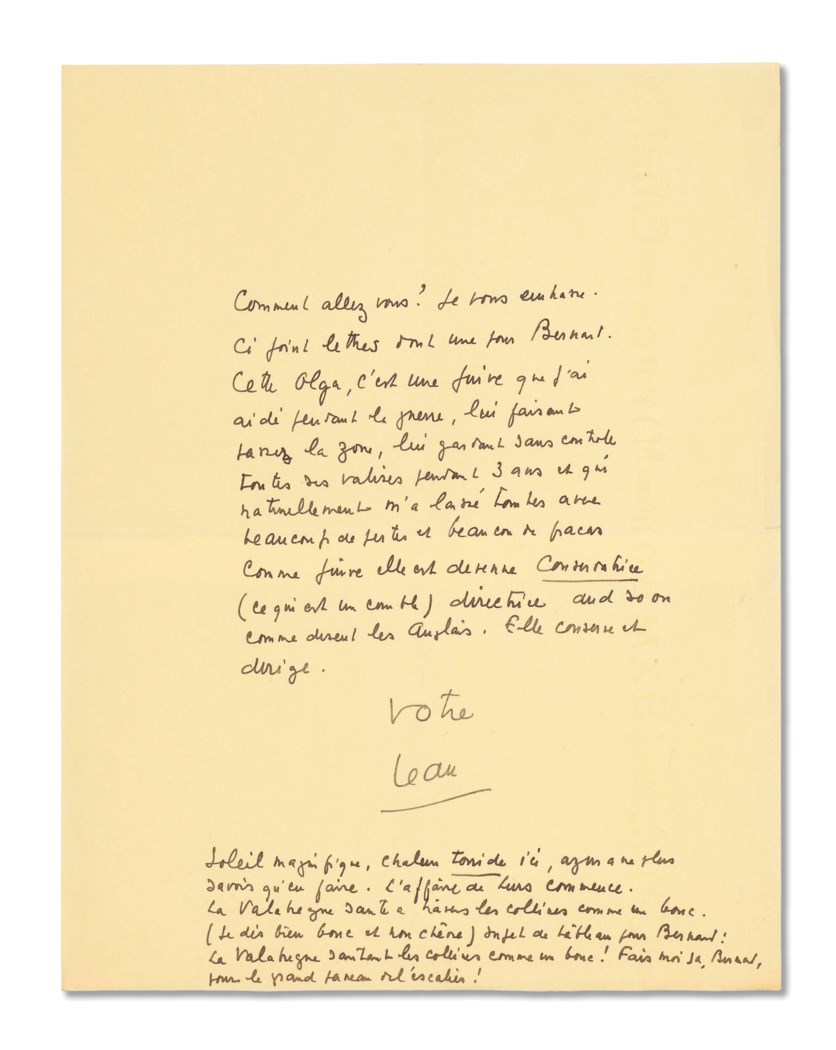 Comment allez vous? Je vous embrasse.
Ci joint lettres dont une pour Bernard.
Cette Olga, c'est une juive que j'ai
aidé pendant la guerre, lui faisant
passer la zone, lui gardant sans contrôle
toutes ses valises pendant 3 ans et qui
naturellement m'a laissé tomber avec
beaucoup de pertes et beaucoup de fracas
Comme juive elle est devenue Conservatrice
(ce qui est un comble) directrice and so on
comme disent les Anglais. Elle conserve et
dirige.
Votre
Jean
Soleil magnifique, chaleur torride ici, a ne plus
savoir qu'en faire. L'affaire de Lurs commence.
La Valabregue saute a travers les collines comme un bouc.
(Je dis bien bouc et non chèvre) Sujet de tableau pour Bernard:
La Valabregue sautant les collines comme un bouc! Fais moi ça, Bernard,
pour le grand panneau de l'escalier!